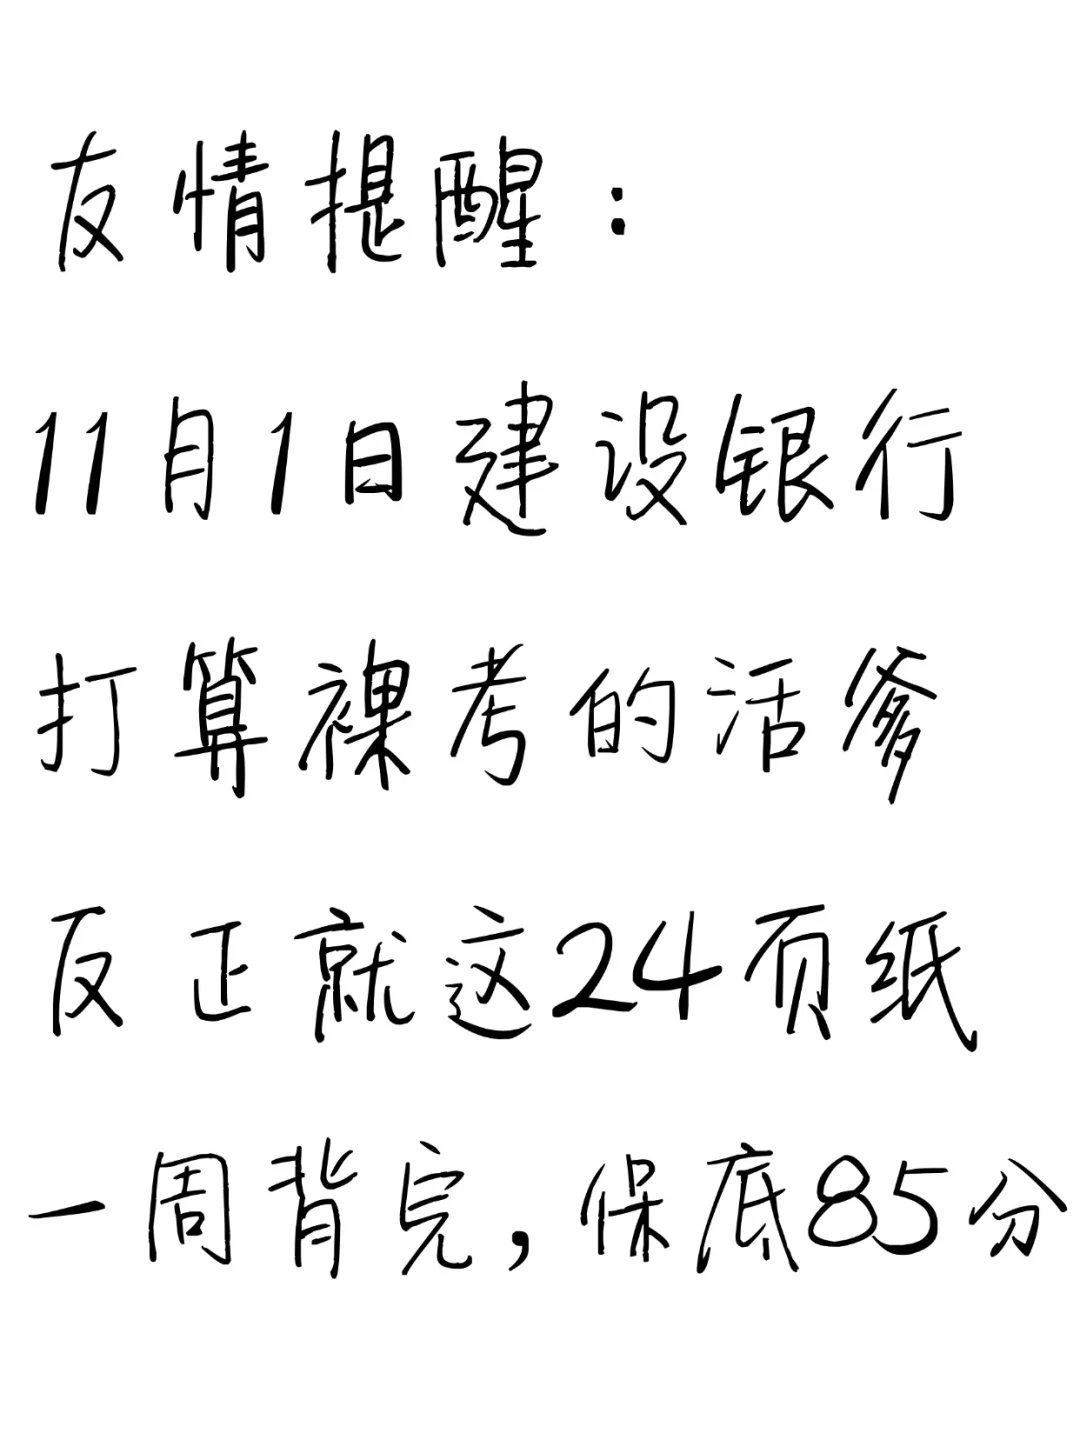 友情提醒：
11月1日建设银行
打算裸考的活爹
反正就这24页纸
一周背完，保底85分